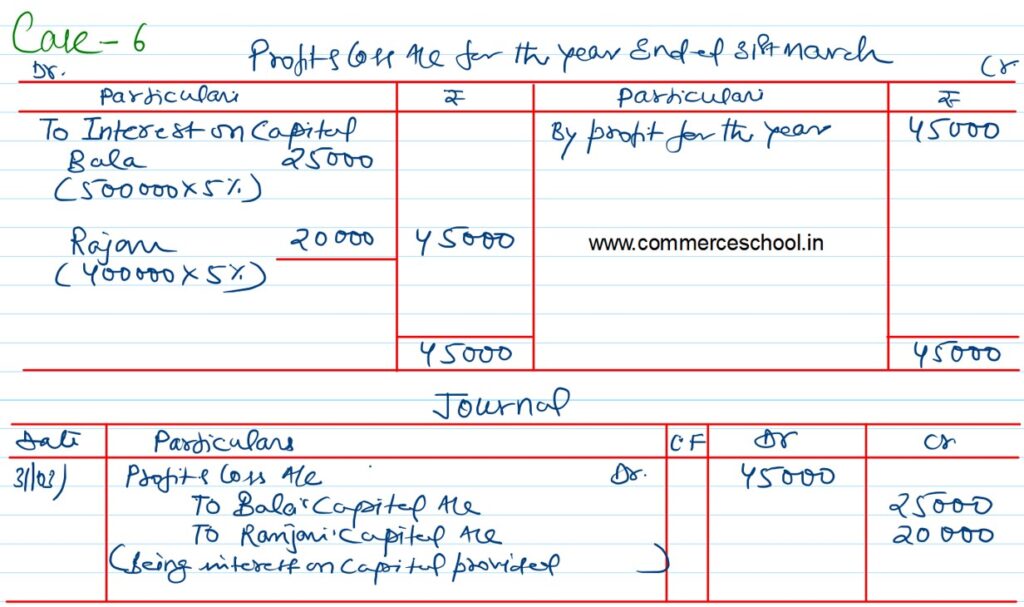 Case - 6
Profit & Loss A/c for the year Ended 31st March
Dr. Cr
Particulars ₹ Particulars ₹
To Interest on Capital By profit for the year 45000
Bala 25000
(500000 x 5%)
Rajani 20000 45000 www.commerceschool.in
(400000 x 5%)
45000 45000
Journal
Date Particulars C F Dr Cr
31/03) Profit & Loss A/c Dr. 45000
To Bala's Capital A/c 25000
To Ranjani's Capital A/c 20000
(being interest on Capital provided)